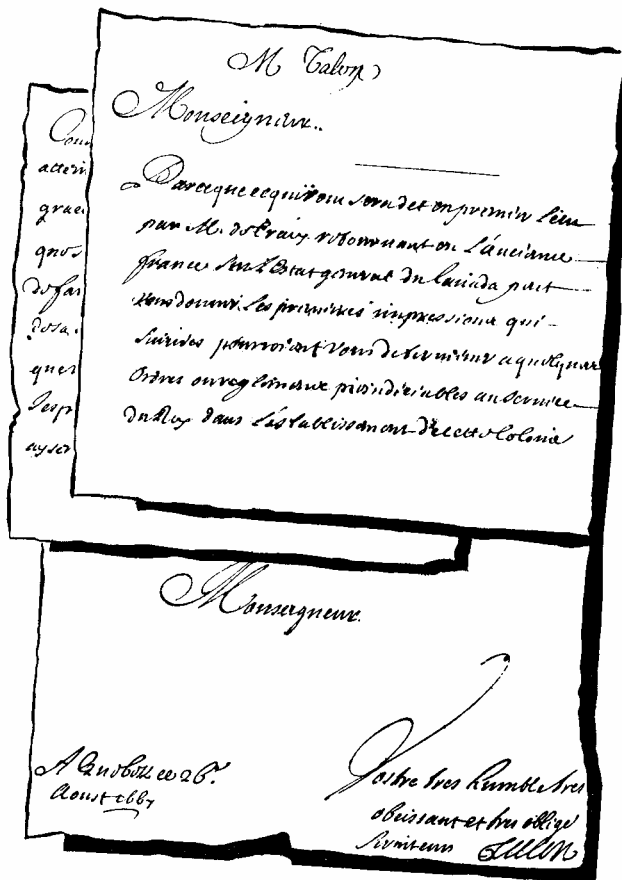 M Talon
Monseigneur..
Parceque ce qui vous sera dit en premier lieu
par M. de Tracy retournant en L'ancienne
france sur L'Estat general du Canada peut
vous donner Les premieres impressions qui
suivies pourroient vous determiner a quelques
Ordres ou reglemens prejudiciables au Service
du Roy dans L'establissement de cette Colonie
Com
gra
de fa
ques
Monseigneur.
A Quebec ce 26e.
Aoust 1667
Vostre tres humble tres
obeissant et tres obligé
serviteur TALON